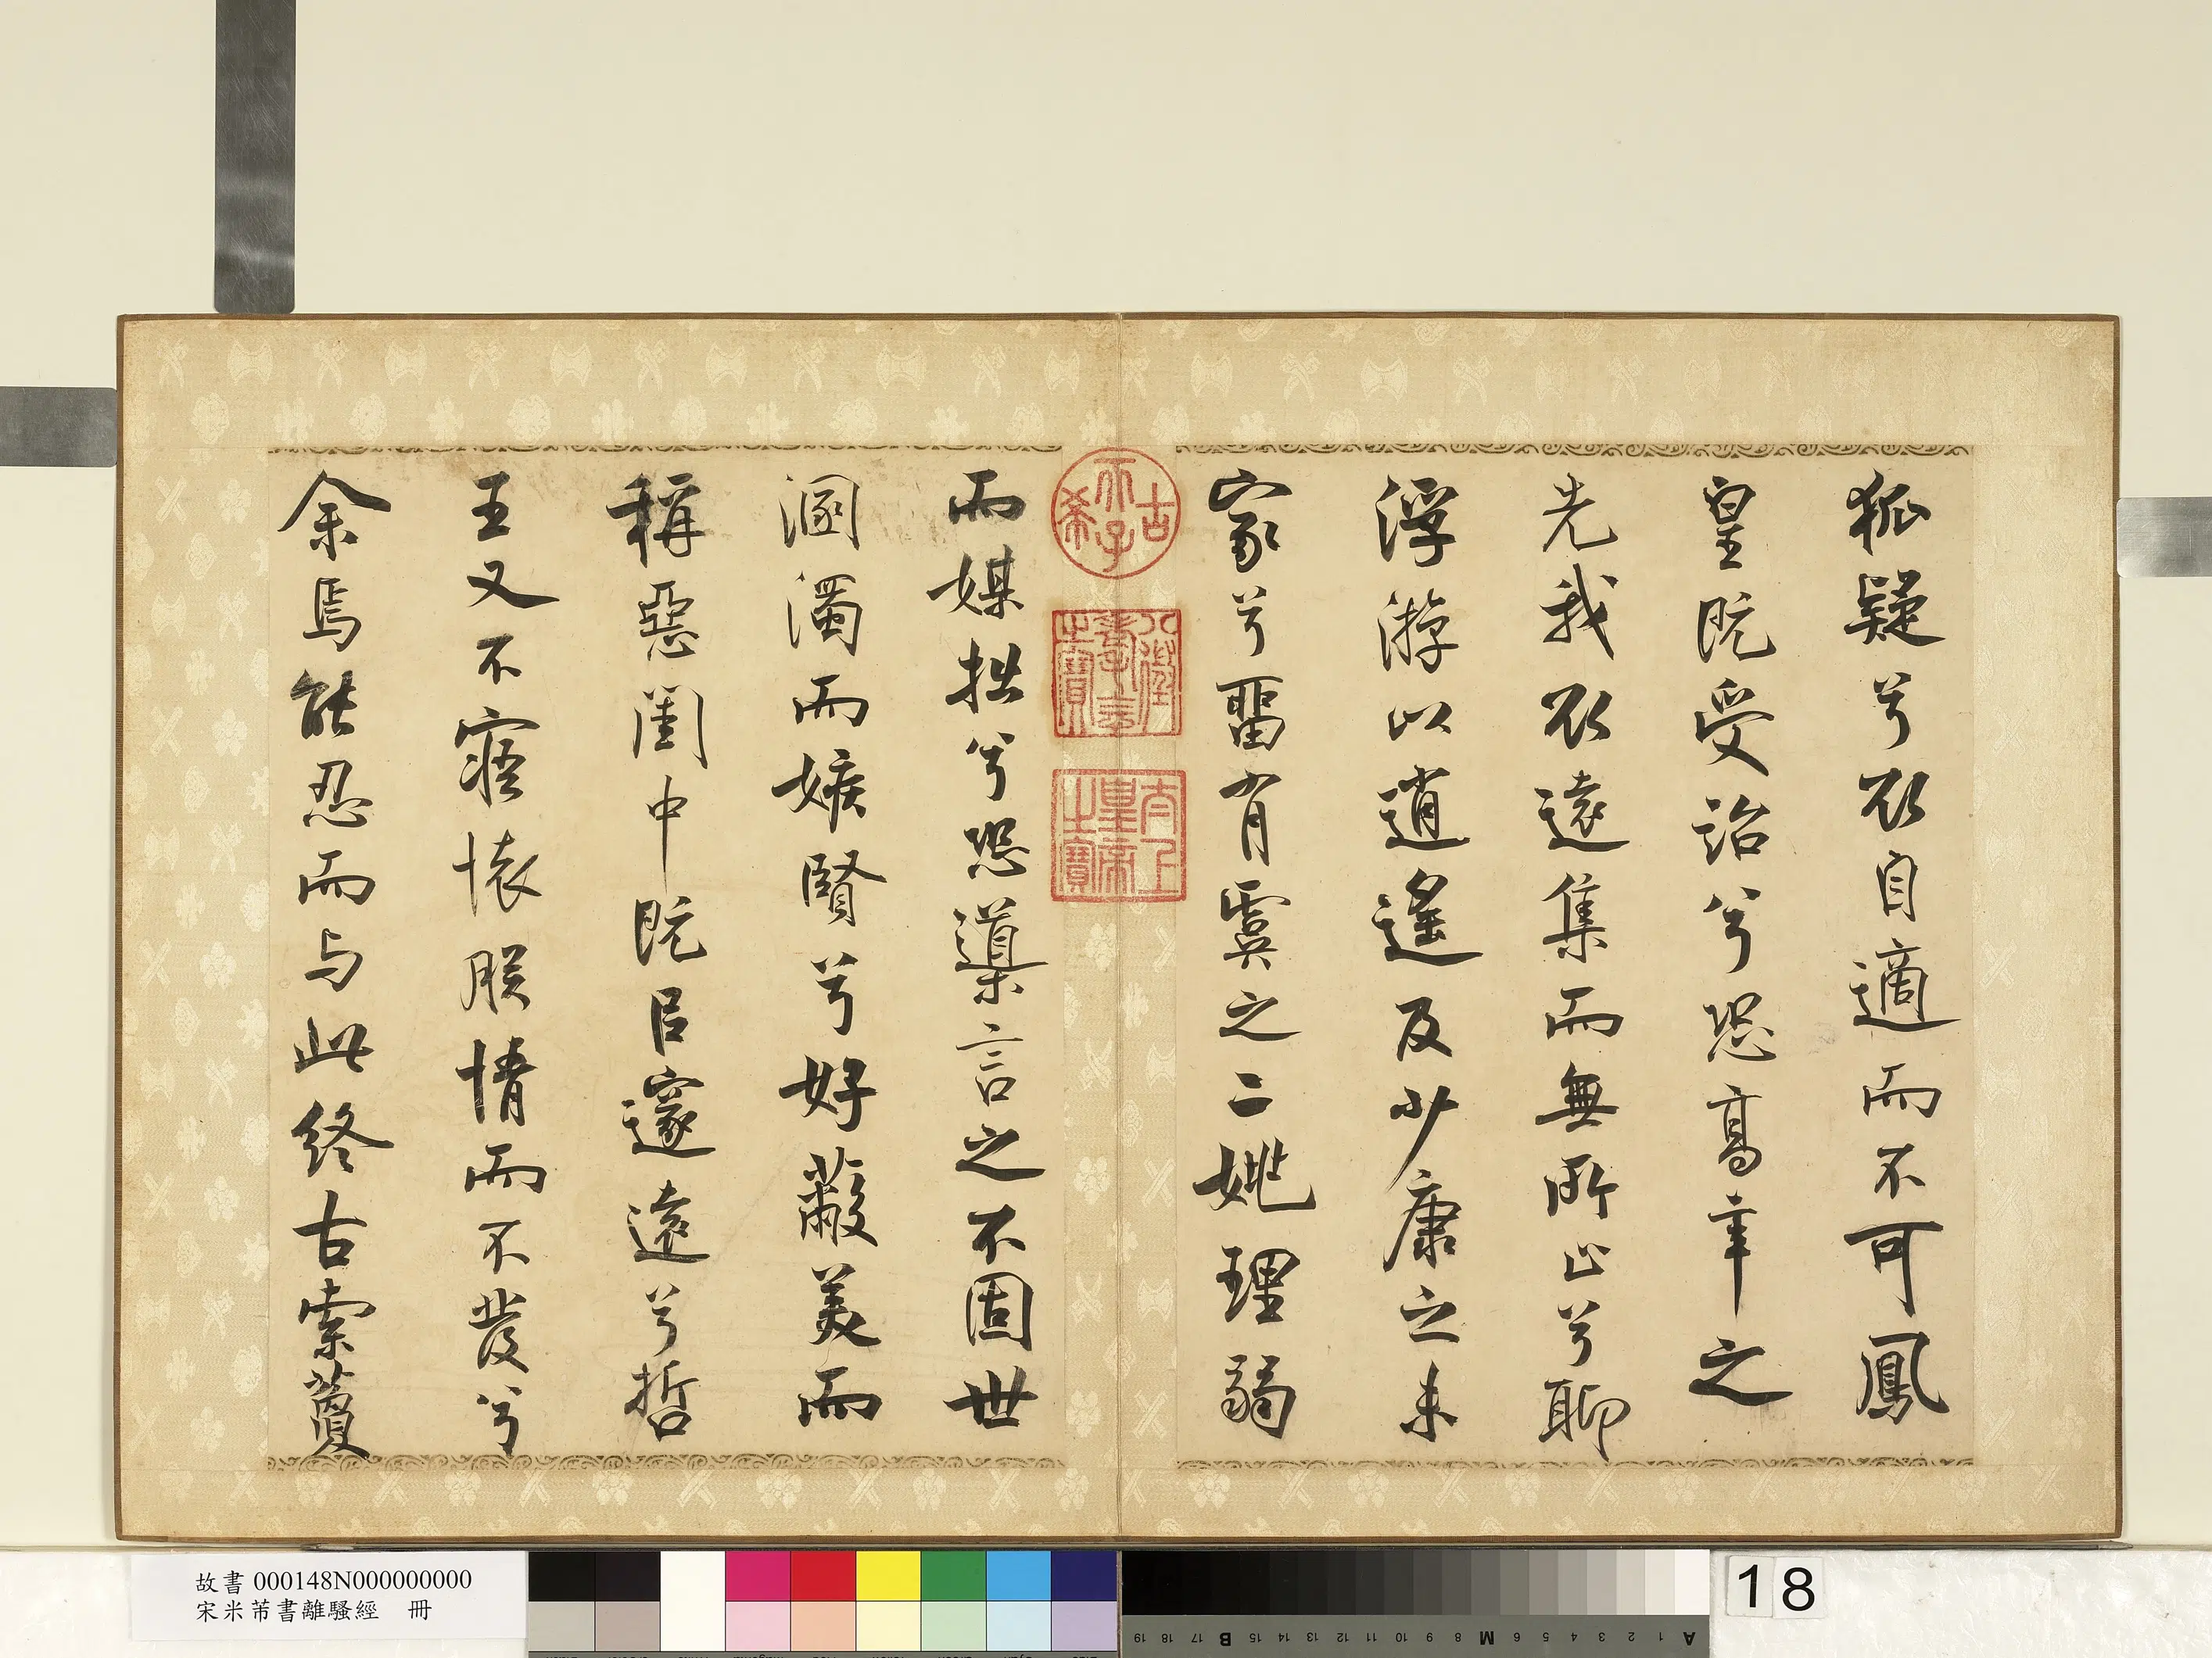 狐疑兮欲自適而不可鳳
皇既受詒兮恐高辛之
先我欲遠集而無所止兮聊
浮游以逍遙及少康之未
家兮畱有虞之二姚理弱
而媒拙兮恐導言之不固世
溷濁而嫉賢兮好蔽美而
稱惡閨中既㠯邃遠兮哲
王又不寤懷朕情而不發兮
余焉能忍而与此終古索藑
古希天子
八徵耄念之寶
太上皇帝之寶
故書 000148N000000000
宋米芾書離騷經 冊
18
A 1 2 3 4 5 6 M 8 9 10 11 12 13 14 15 B 17 18 19